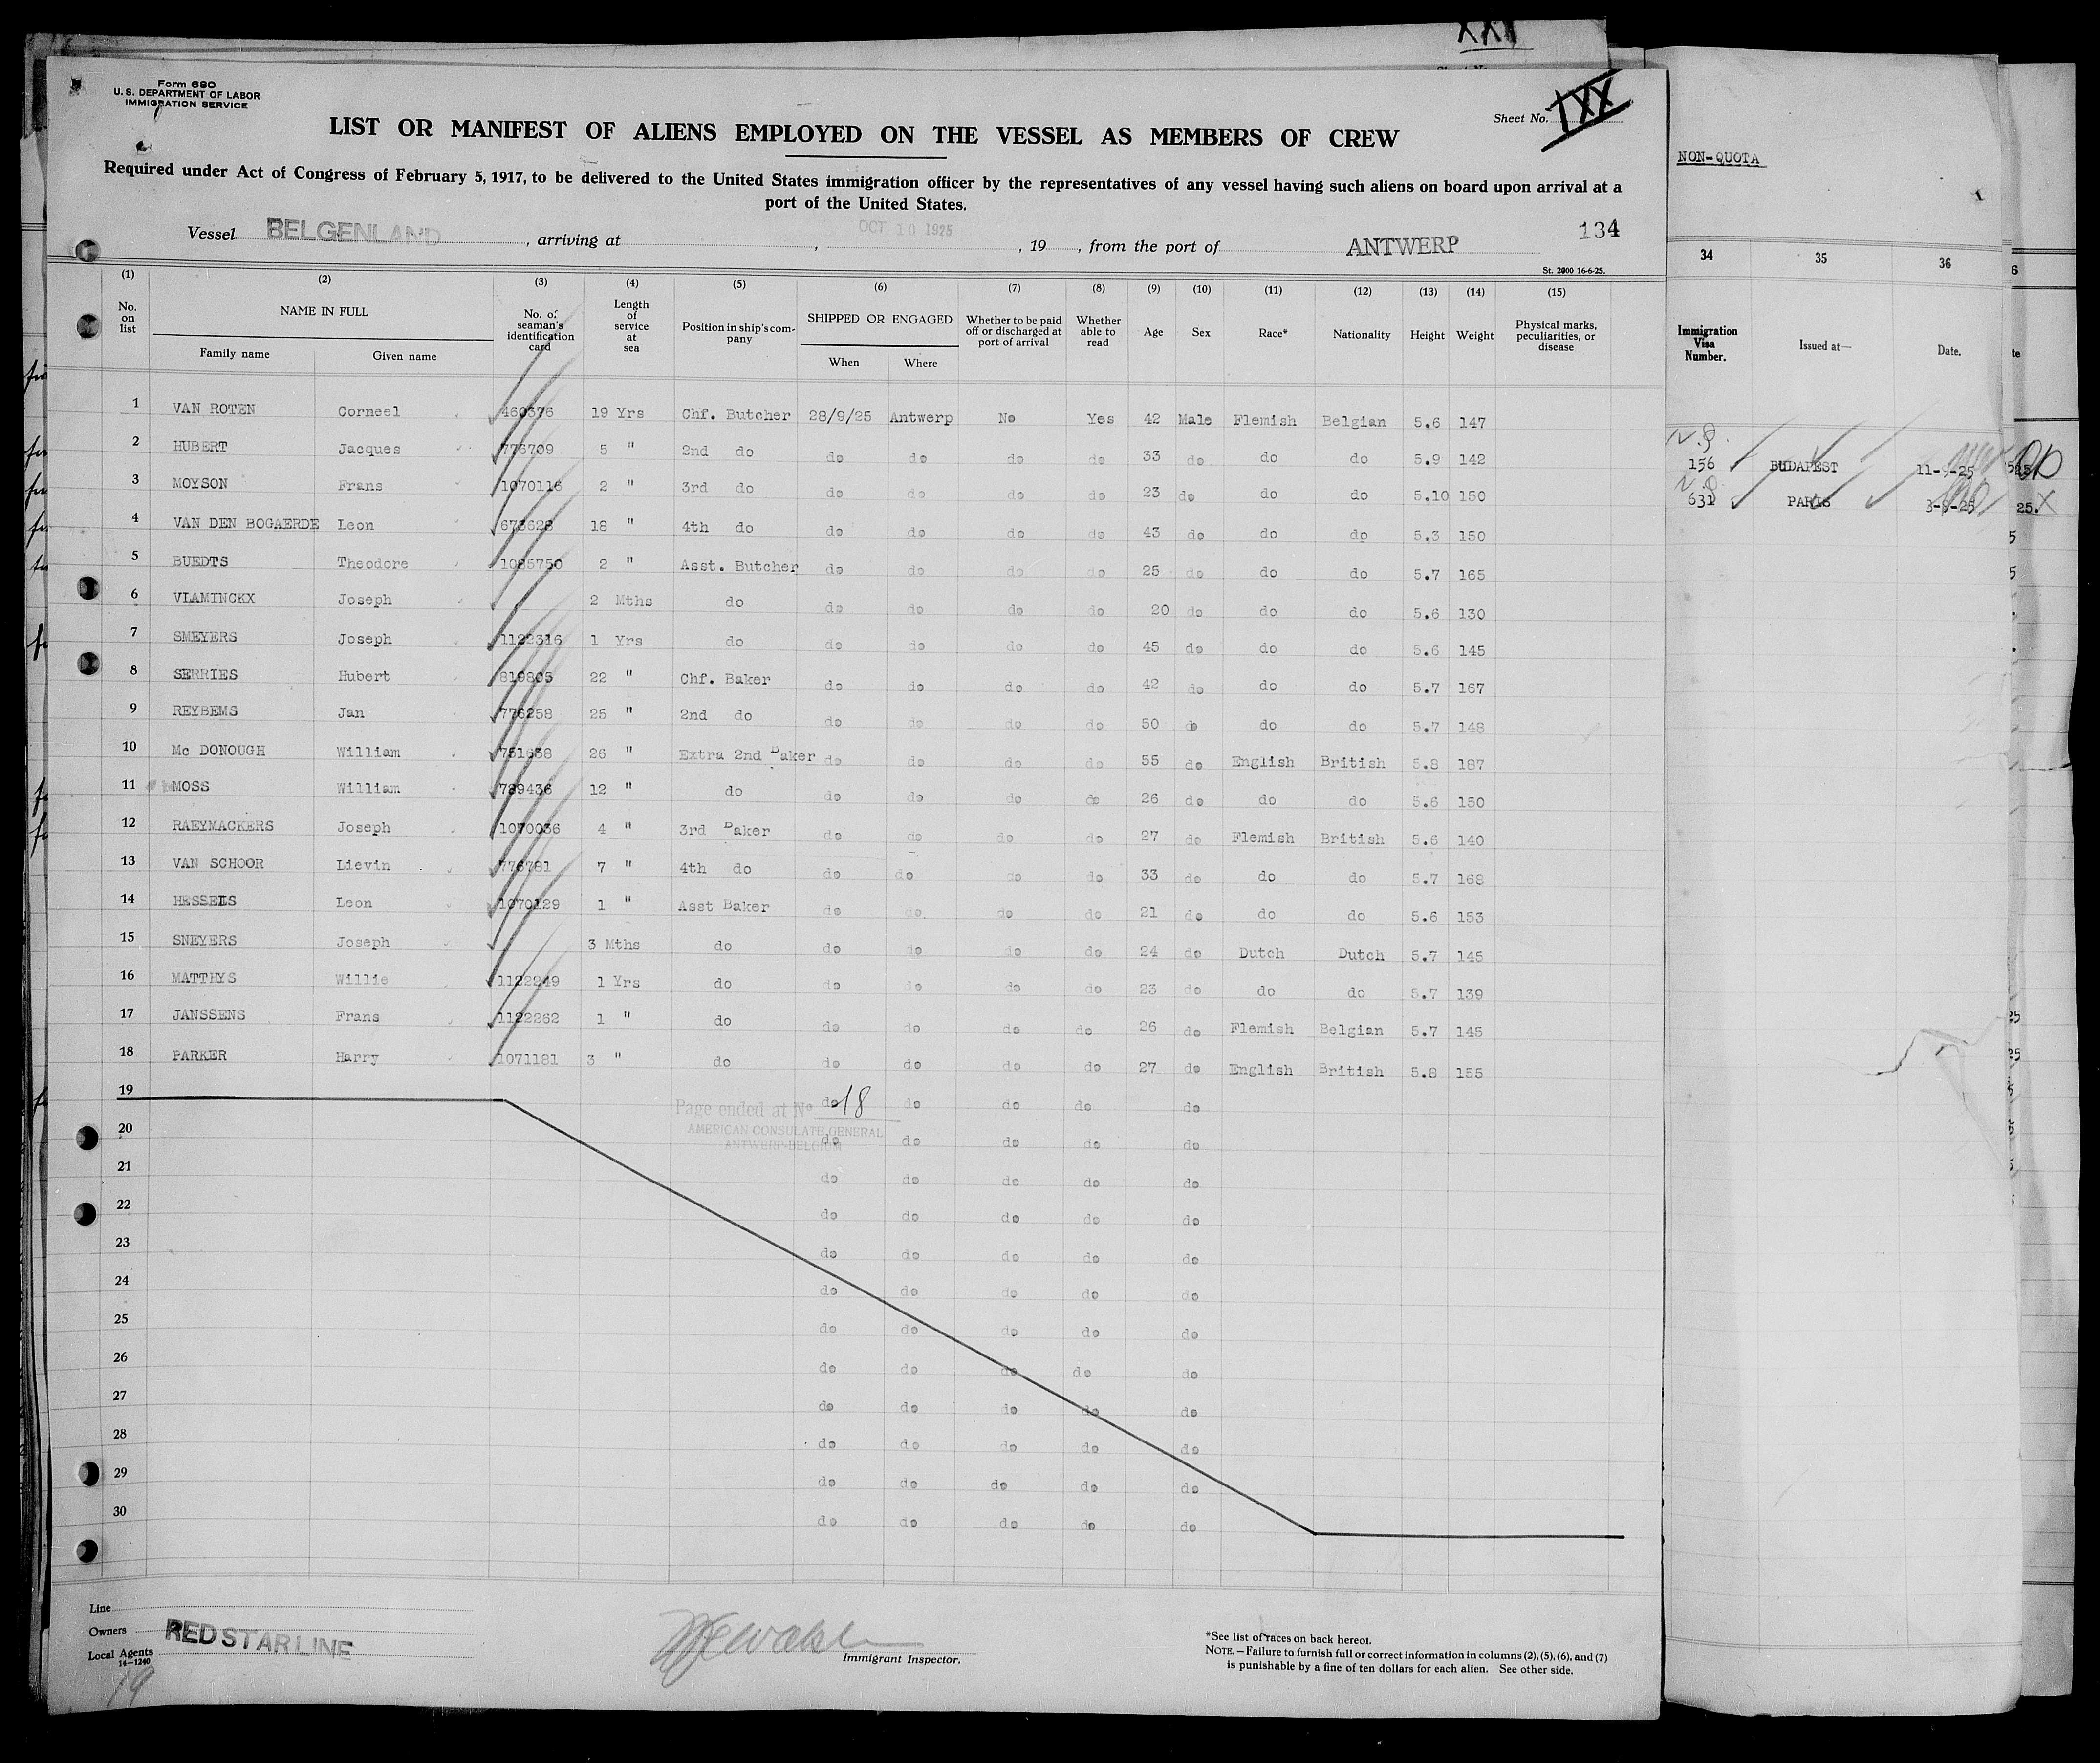 Form 680
U. S. DEPARTMENT OF LABOR
IMMIGRATION SERVICE
Sheet No.
LIST OR MANIFEST OF ALIENS EMPLOYED ON THE VESSEL AS MEMBERS OF CREW
Required under Act of Congress of February 5, 1917, to be delivered to the United States immigration officer by the representatives of any vessel having such aliens on board upon arrival at a
port of the United States.
Vessel BELGENLAND, arriving at , OCT 10 1925, 19 , from the port of ANTWERP 134
St. 2000 16-6-25.
(1) (2) (3) (4) (5) (6) (7) (8) (9) (10) (11) (12) (13) (14) (15)
No. on list NAME IN FULL Family name Given name No. of seaman's identification card Length of service at sea Position in ship's company SHIPPED OR ENGAGED When Where Whether to be paid off or discharged at port of arrival Whether able to read Age Sex Race* Nationality Height Weight Physical marks, peculiarities, or disease
1 VAN ROTEN Corneel 460376 19 Yrs Chf. Butcher 28/9/25 Antwerp No Yes 42 Male Flemish Belgian 5.6 147
2 HUBERT Jacques 776709 5 " 2nd do do do do do 33 do do do 5.9 142
3 MOYSON Frans 1070116 2 " 3rd do do do do do 23 do do do 5.10 150
4 VAN DEN BOGAERDE Leon 673628 18 " 4th do do do do do 43 do do do 5.3 150
5 BUEDTS Theodore 1085750 2 " Asst. Butcher do do do do 25 do do do 5.7 165
6 VLAMINCKX Joseph 2 Mths do do do do do 20 do do do 5.6 130
7 SMEYERS Joseph 1122316 1 Yrs do do do do do 45 do do do 5.6 145
8 SERRIES Hubert 819805 22 " Chf. Baker do do do do 42 do do do 5.7 167
9 REYBEMS Jan 776258 25 " 2nd do do do do do 50 do do do 5.7 148
10 Mc DONOUGH William 751638 26 " Extra 2nd Baker do do do do 55 do English British 5.8 187
11 MOSS William 789436 12 " do do do do do 26 do do do 5.6 150
12 RAEYMACKERS Joseph 1070036 4 " 3rd Baker do do do do 27 do Flemish British 5.6 140
13 VAN SCHOOR Lievin 776781 7 " 4th do do do do do 33 do do do 5.7 168
14 HESSELS Leon 1070129 1 " Asst Baker do do do do 21 do do do 5.6 153
15 SNEYERS Joseph 3 Mths do do do do do 24 do Dutch Dutch 5.7 145
16 MATTHYS Willie 1122249 1 Yrs do do do do do 23 do do do 5.7 139
17 JANSSENS Frans 1122262 1 " do do do do do 26 do Flemish Belgian 5.7 145
18 PARKER Harry 1071181 3 " do do do do do 27 do English British 5.8 155
19 Page ended at No 18 do do do do do
AMERICAN CONSULATE GENERAL
ANTWERP-BELGIUM
20 do do do do do
21 do do do do do
22 do do do do do
23 do do do do do
24 do do do do do
25 do do do do do
26 do do do do do
27 do do do do do
28 do do do do do
29 do do do do do
30 do do do do do
Line
Owners
RED STAR LINE
Local Agents
14-1240
19
Immigrant Inspector.
*See list of races on back hereof.
NOTE.—Failure to furnish full or correct information in columns (2), (5), (6), and (7)
is punishable by a fine of ten dollars for each alien. See other side.
NON-QUOTA
34 35 36
Immigration Visa Number. Issued at— Date.
156 BUDAPEST 11-9-25
631 PARIS 3-9-25